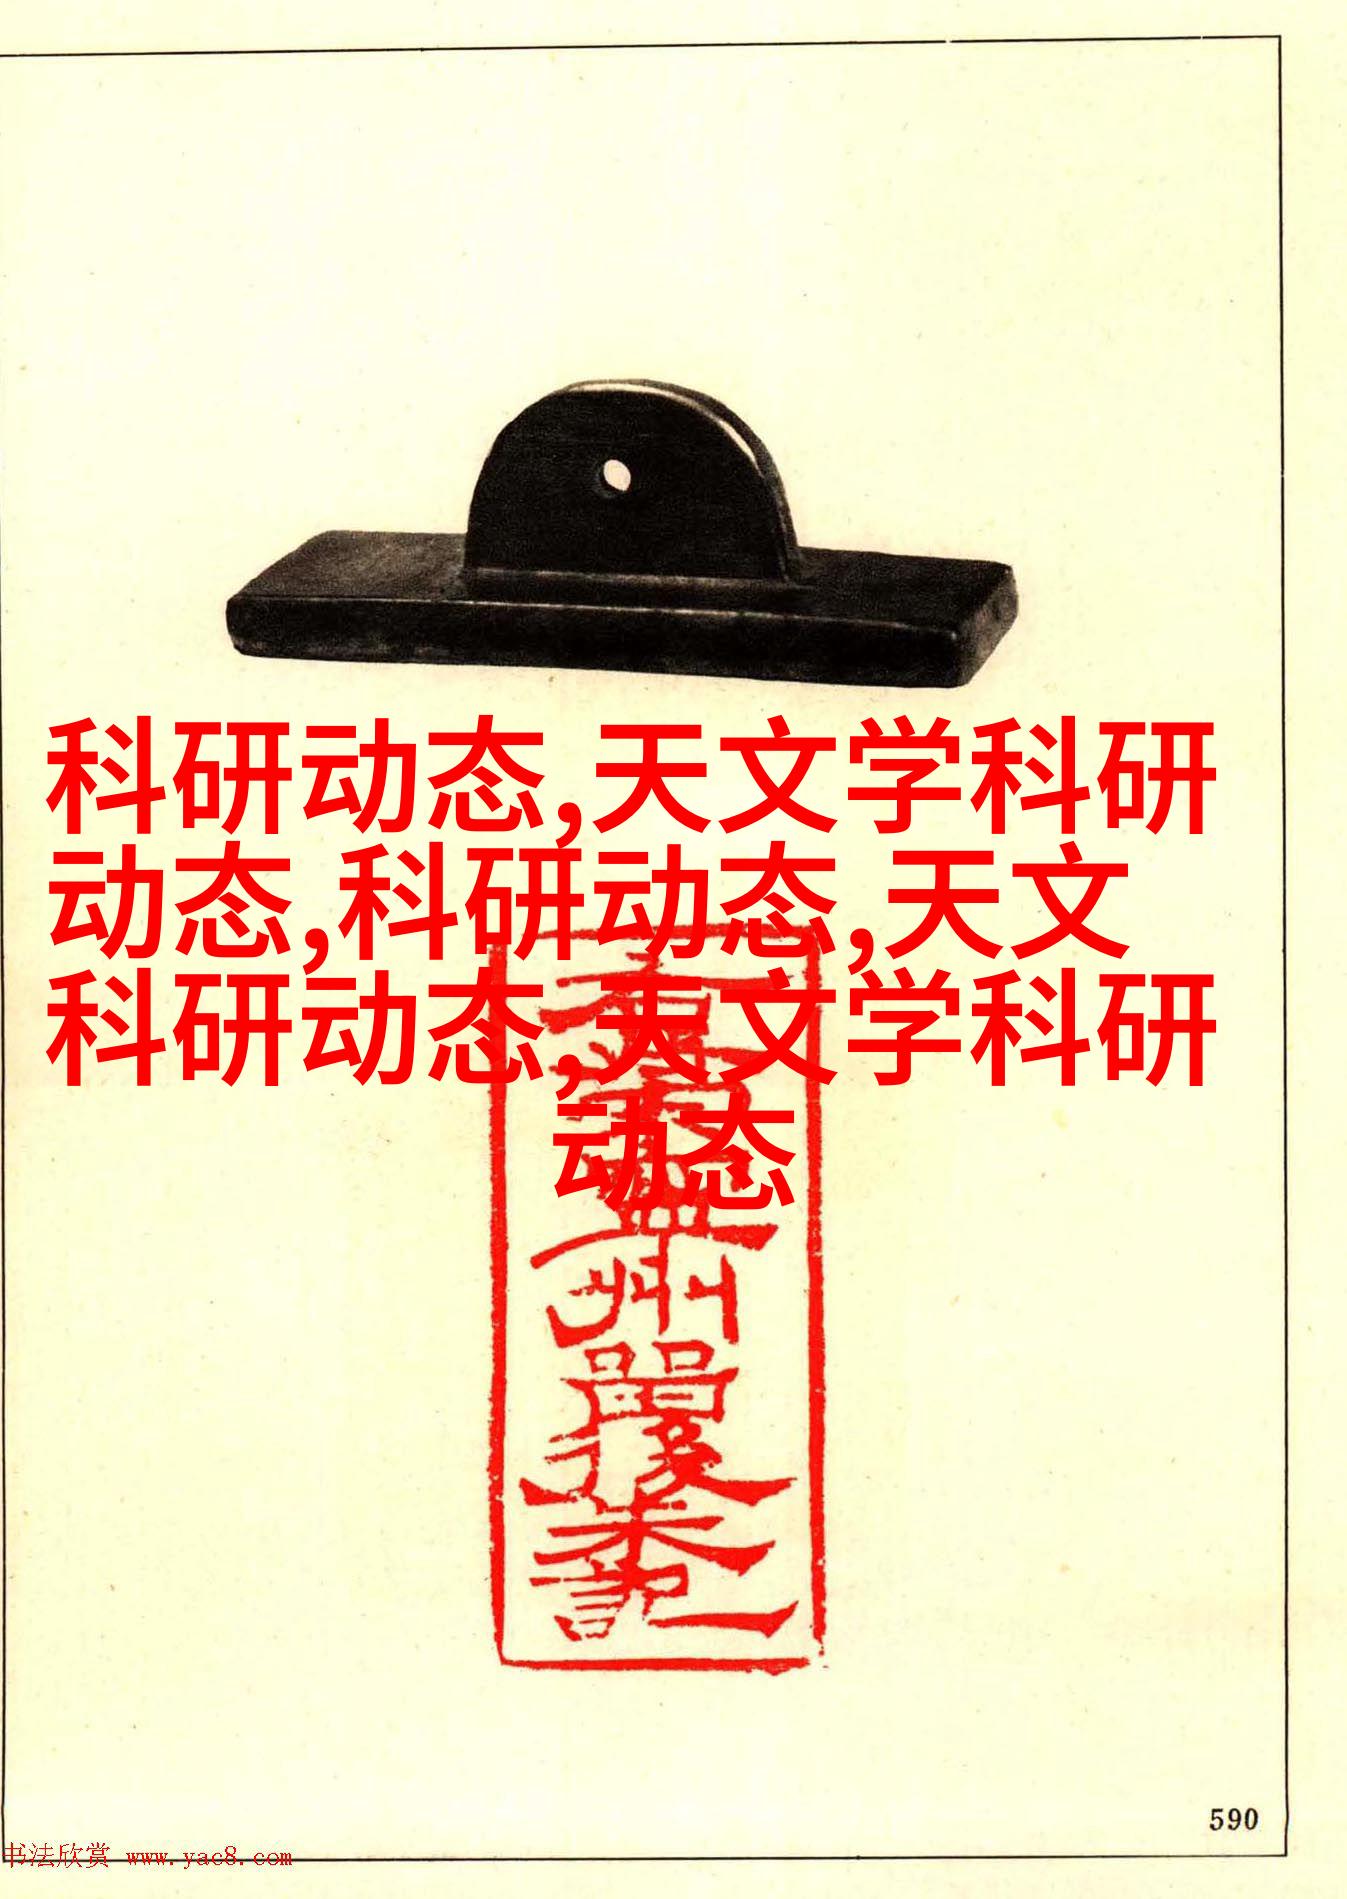 科研动态,天文学科研
动态,科研动态,天文
科研动态,天文学科研
动态
州
朱
記
590
书法欣赏 www.yac8.com